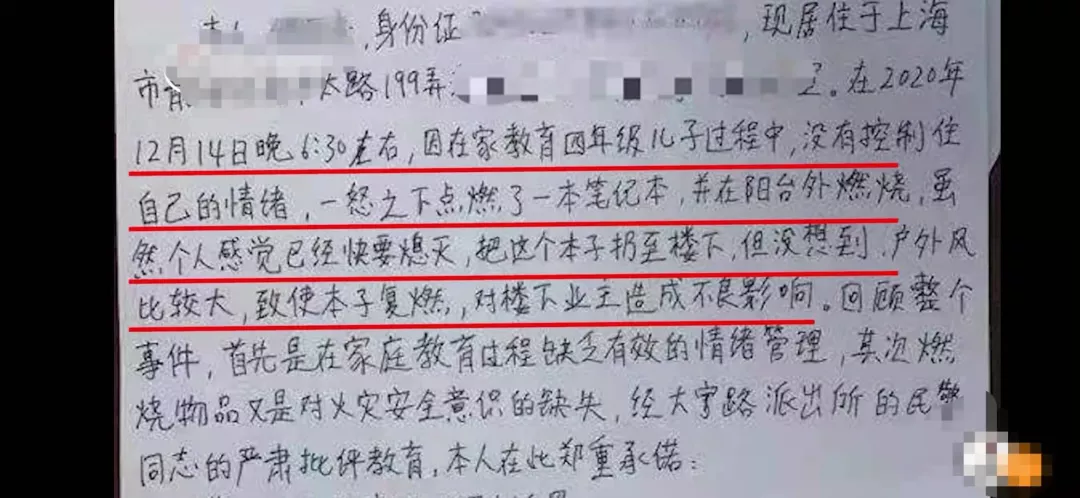 ,身份证 ,现居住于上海
市 太路199弄 。在2020年
12月14日晚6:30左右,因在家教育四年级儿子过程中,没有控制住
自己的情绪,一怒之下点燃了一本笔记本,并在阳台外燃烧,虽
然个人感觉已经快要熄灭,把这个本子扔至楼下,但没想到,户外风
比较大,致使本子复燃,对楼下业主造成不良影响。回顾整个
事件,首先是在家庭教育过程缺乏有效的情绪管理,其次燃
烧物品又是对火灾安全意识的缺失,经大宁路派出所的民警
同志的严肃批评教育,本人在此郑重承诺: